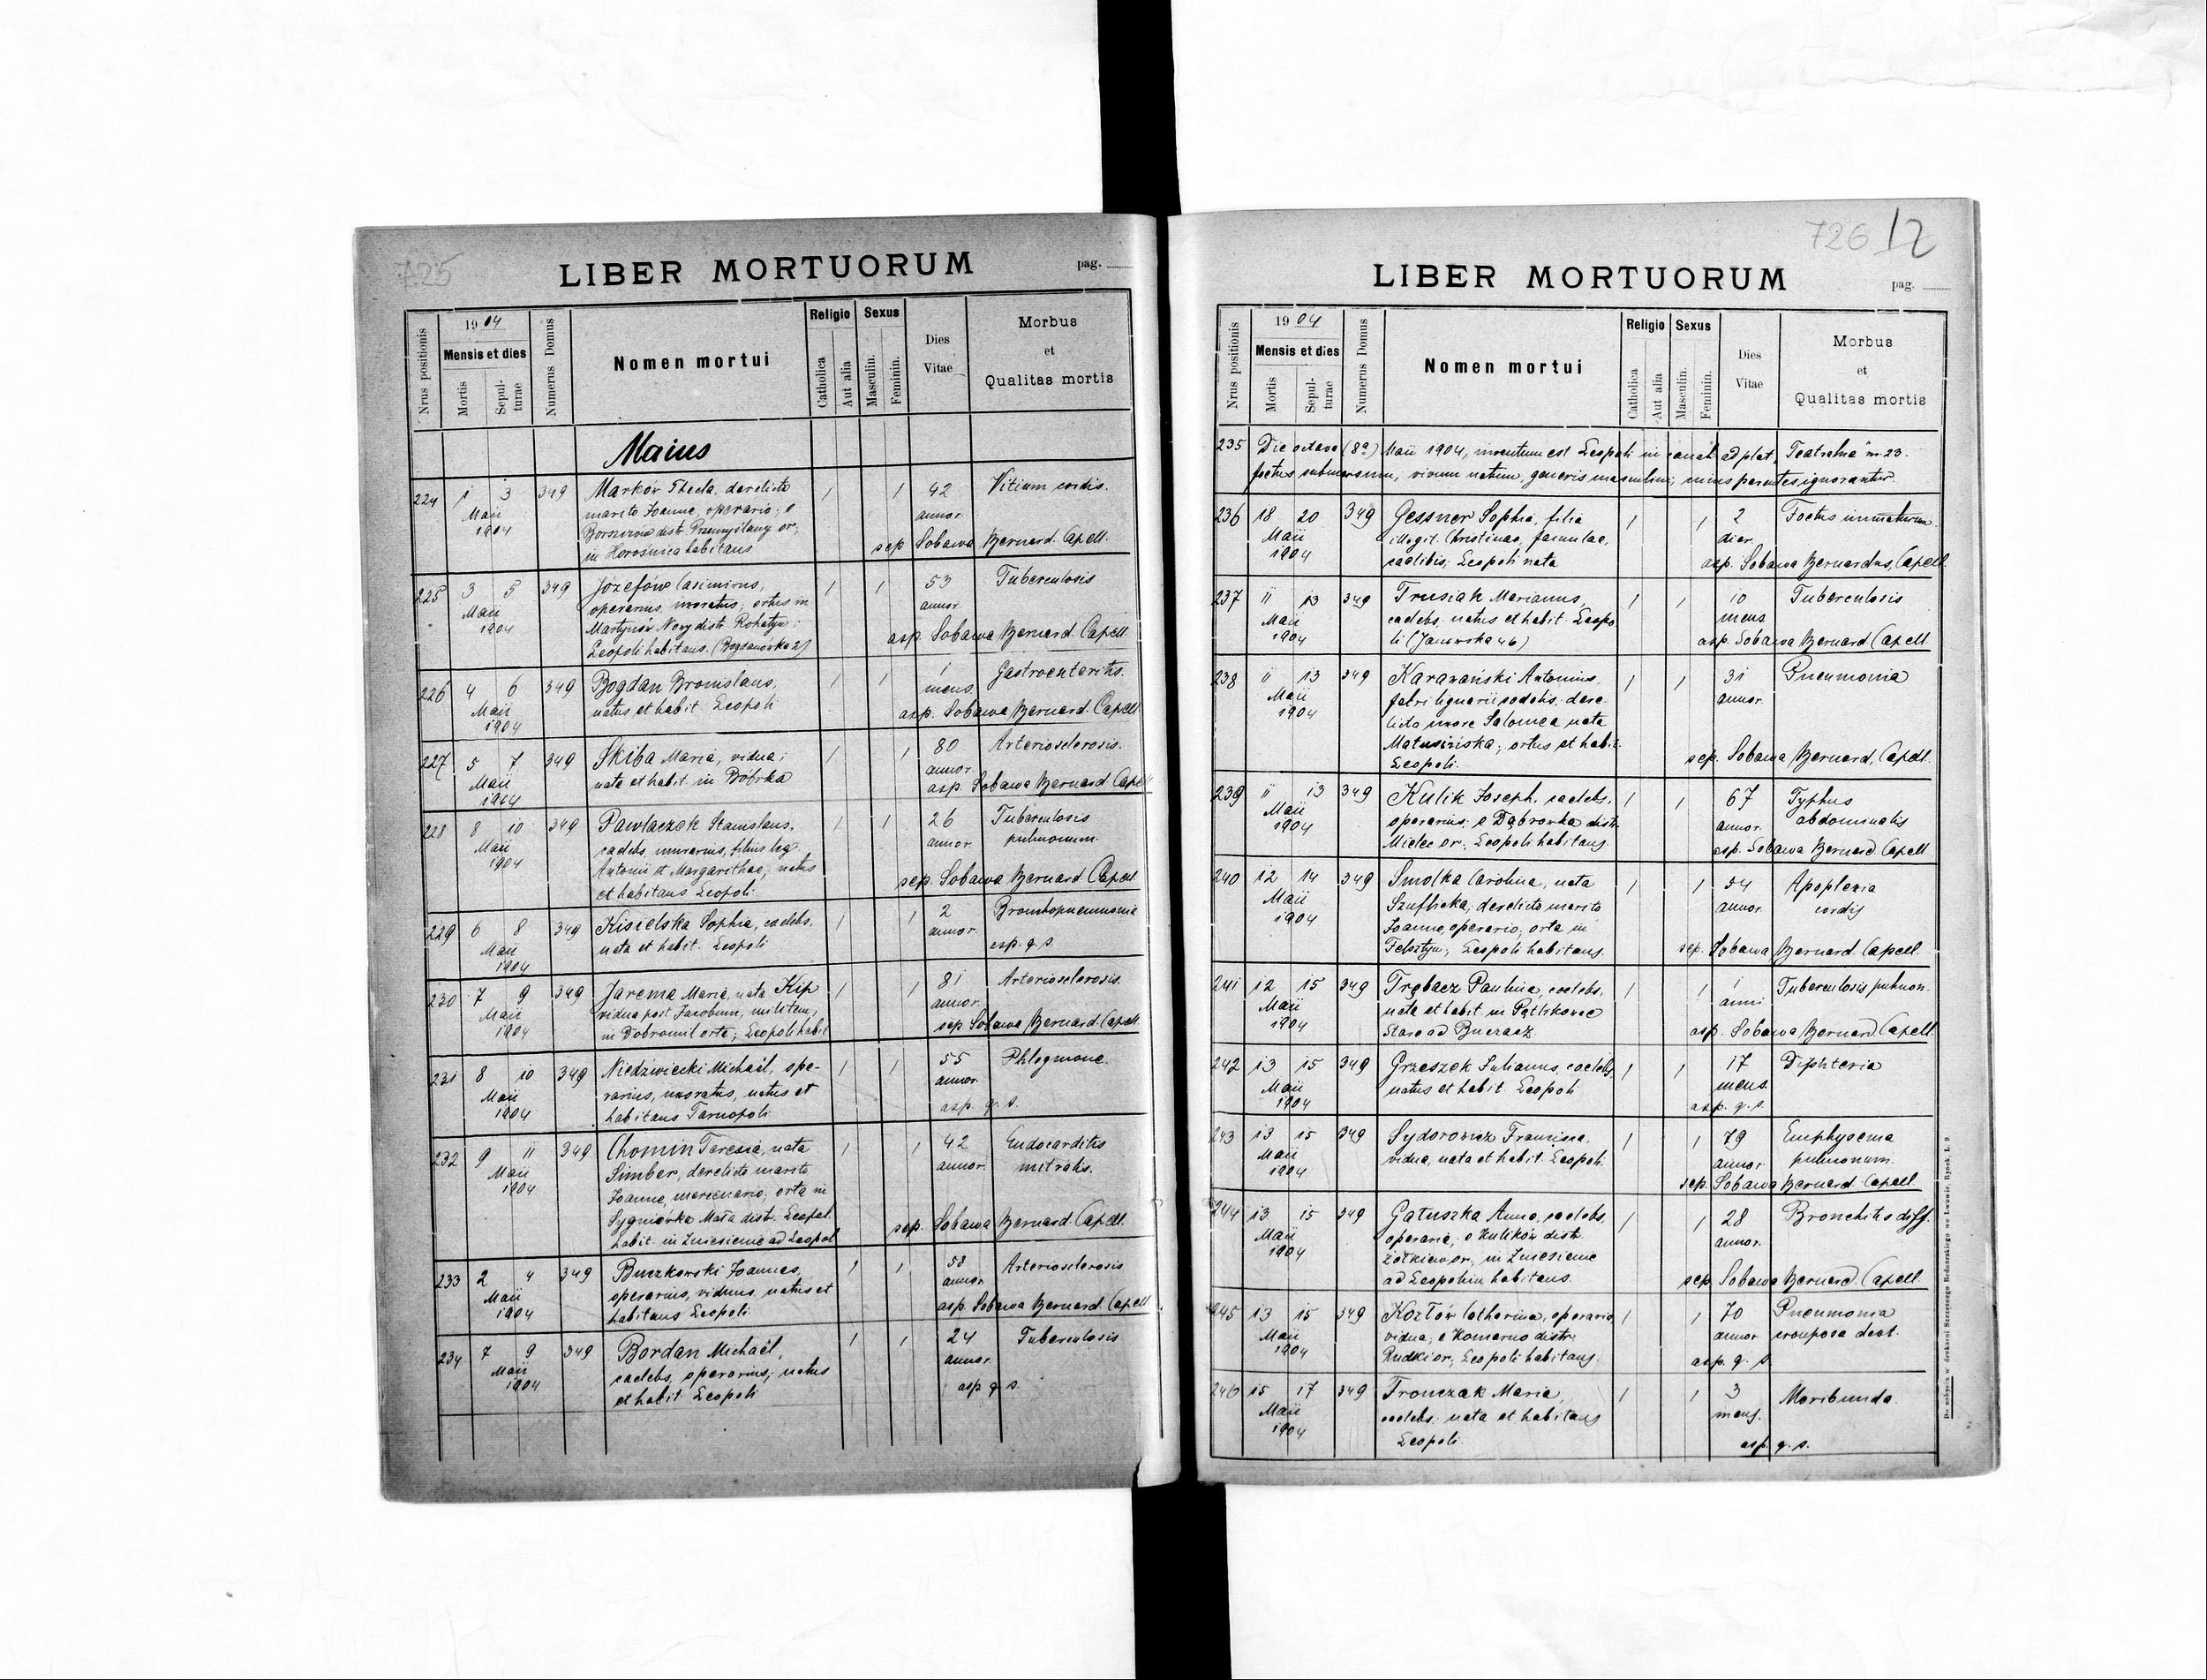 725
LIBER MORTUORUM
pag.
Nrus positionis
1904
Mensis et dies
Mortis
Sepul-
turae
Numerus Domus
Nomen mortui
Religio
Catholica
Aut alia
Sexus
Masculin.
Feminin.
Dies
Vitae
Morbus
et
Qualitas mortis
Maius
224 1 3 349 Markow Thecla, derelicta 1 1 42 Vitium cordis.
Maii marito Joanne, operario; e annor.
1904 dist. Przemyślany or.,
in Horośnica habitans sep. Sobawa Bernard. Capell.
225 3 5 349 Józefów Casimirus, 1 1 53 Tuberculosis
Maii operarius, uxoratus; ortus in annor.
1904 Martynów Novy distr. Rohatyn; asp. Sobawa Bernard. Capell.
Leopoli habitans. (Bogdanowka 2)
226 4 6 349 Bogdan Bronislaus, 1 1 1 Gastroenteritis.
Maii natus et habit. Leopoli mens.
1904 asp. Sobawa Bernard. Capell.
227 5 7 349 Skiba Maria, vidua; 1 1 80 Arteriosclerosis.
Maii nata et habit. in Bóbrka annor.
1904 asp. Sobawa Bernard Capell
228 8 10 349 Pawlaczek Stanislaus, 1 1 26 Tuberculosis
Maii caelebs, murarius, filius leg. annor. pulmonum.
1904 Antonii et Margarithae, natus
et habitans Leopoli. sep. Sobawa Bernard Capell
229 6 8 349 Kisielska Sophia, caelebs, 1 1 2 Bronchopneumonia
Maii nata et habit. Leopoli annor.
1904 asp. q. s.
230 7 9 349 Jarema Maria, nata Kip 1 1 81 Arteriosclerosis.
Maii vidua post Jacobum, militem, annor.
1904 in Dobromil orta; Leopoli habit. sep. Sobawa Bernard. Capell
231 8 10 349 Niedźwiecki Michaël, ope- 1 1 55 Phlegmone.
Maii rarius, uxoratus, natus et annor.
1904 habitans Tarnopoli asp. q. s.
232 9 11 349 Chomin Teresia, nata 1 1 42 Endocarditis
Maii Simber, derelicta marito annor. mitralis.
1904 Joanne, mercenario; orta in
Sygniówka Mała distr. Leopol.
habit. in Zniesienie ad Leopol sep. Sobawa Bernard. Capell.
233 2 4 349 Buczkowski Joannes, 1 1 58 Arteriosclerosis
Maii operarius, viduus, natus et annor.
1904 habitans Leopoli. asp. Sobawa Bernard. Capell
234 7 9 349 Bordan Michaël, 1 1 24 Tuberculosis
Maii caelebs, operarius; natus annor.
1904 et habit. Leopoli asp. q. s.
726 12
LIBER MORTUORUM
pag.
Nrus positionis
1904
Mensis et dies
Mortis
Sepul-
turae
Numerus Domus
Nomen mortui
Religio
Catholica
Aut alia
Sexus
Masculin.
Feminin.
Dies
Vitae
Morbus
et
Qualitas mortis
235 Die octava (8a) Maii 1904, inventum est Leopoli in canali ad plat. Teatralna nr. 23.
foetus submersum, vivum natum, generis masculini, cuius parentes ignorantur.
236 18 20 349 Gessner Sophia, filia 1 1 2 Foetus immaturum.
Maii illegit. Christinae, famulae, dier.
1904 caelibis; Leopoli nata asp. Sobawa Bernardus, Capell.
237 11 13 349 Trusiak Marianus, 1 1 10 Tuberculosis
Maii caelebs, natus et habit. Leopo mens
1904 li (Janowska 46) asp. Sobawa Bernard Capell
238 11 13 349 Karawański Antonius, 1 1 31 Pneumonia
Maii fabri lignarii sodalis, dere- annor.
1904 licta uxore Salomea nata
Matusińska; ortus et habit.
Leopoli. sep. Sobawa Bernard, Capell.
239 11 13 349 Kulik Joseph, caelebs, 1 1 67 Typhus
Maii operarius; e Dąbrowka distr. annor. abdominalis
1904 Mielec or., Leopoli habitans. asp. Sobawa Bernard Capell
240 12 14 349 Smolka Carolina, nata 1 1 54 Apoplexia
Maii derelicta marito annor. cordis
1904 Joanne, operario, orta in
Felsztyn; Leopoli habitans. sep. Sobawa Bernard. Capell.
241 12 15 349 Trębacz Paulina, caelebs, 1 1 1 Tuberculosis pulmon.
Maii nata et habit. in anni
1904 Stare ad Buczacz asp. Sobawa Bernard Capell.
242 13 15 349 Grzeszek Julianus, caelebs, 1 1 17 Diphteria
Maii natus et habit. Leopoli mens.
1904 asp. q. s.
243 13 15 349 Sydorowicz Francisca, 1 1 79 Emphysema
Maii vidua, nata et habit. Leopoli. annor. pulmonum.
1904 sep. Sobawa Bernard. Capell.
244 13 15 349 Gałuszka Anna, caelebs, 1 1 28 Bronchitis diff.
Maii operaria, e Kulików distr. annor.
1904 Żółkiew or., in Zniesienie
ad Leopolim habitans. sep. Sobawa Bernard. Capell.
245 13 15 349 Kozłów Catharina, operaria, 1 1 70 Pneumonia
Maii vidua; e Komarno distr. annor crouposa dext.
1904 Rudki or., Leopoli habitans. asp. q. s.
246 15 17 349 Fronczak Maria, 1 1 3 Moribunda.
Maii caelebs, nata et habitans mens.
1904 Leopoli. asp. q. s.